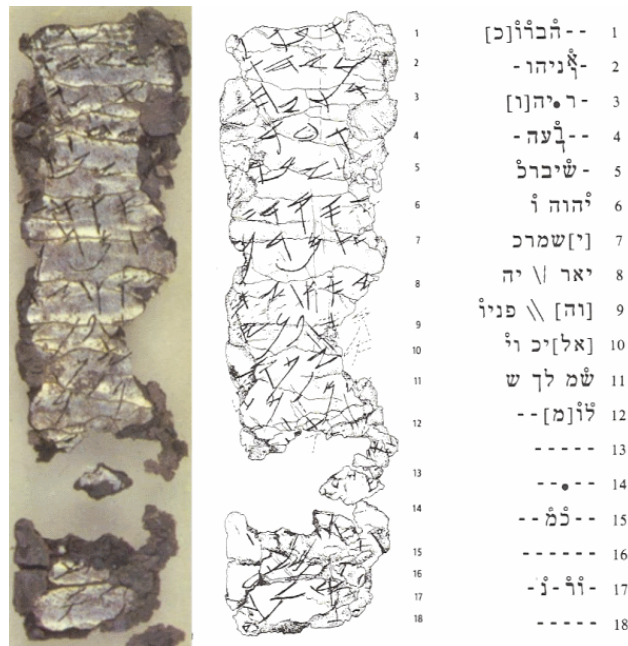 1
2
3
4
5
6
7
8
9
10
11
12
13
14
15
16
17
18
1 - -ה̊בר̊ו̊[כ]
2 -א̊ניהו-
3 -ר•יה[ו]
4 - -ר̊עה-
5 -ש̊יברכ̊
6 י̊הוה ו̊
7 [י]שמרכ
8 יאר \\ יה
9 [וה] \\ פניו̊
10 [אל]יכ וי̊
11 ש̊מ לך ש
12 ל̊ו̊[מ]- -
13 - - - - -
14 - -•- -
15 - -כ̊מ̊- -
16 - - - - - -
17 -ו̊ר̊-נ̊-
18 - - - - -